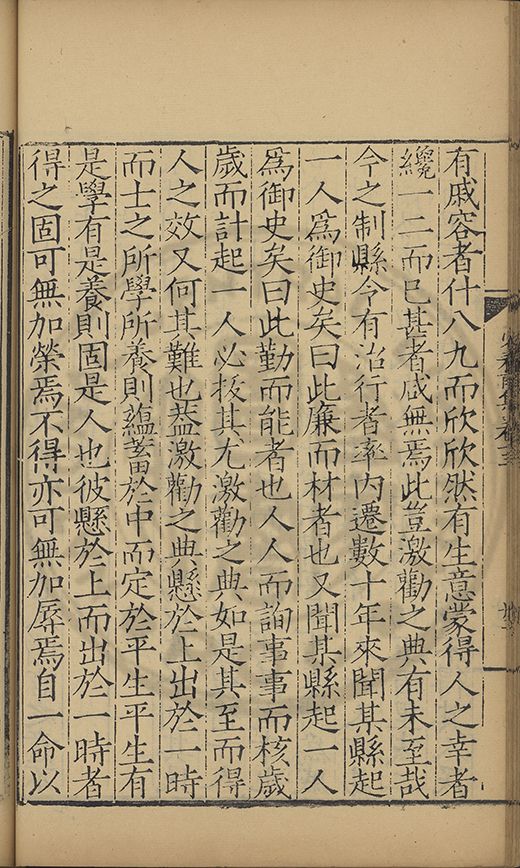 有戚容者什八九而欣欣然有生意蒙得人之幸者
纔一二而已甚者咸無焉此豈激勸之典有未至哉
今之制縣令有治行者率內遷數十年來聞某縣起
一人爲御史矣曰此廉而材者也又聞某縣起一人
爲御史矣曰此勤而能者也人人而詢事事而核歲
歲而計起一人必拔其尤激勸之典如是其至而得
人之效又何其難也葢激勸之典懸於上出於一時
而士之所學所養則蘊蓄於中而定於平生平生有
是學有是養則固是人也彼懸於上而出於一時者
得之固可無加榮焉不得亦可無加辱焉自一命以